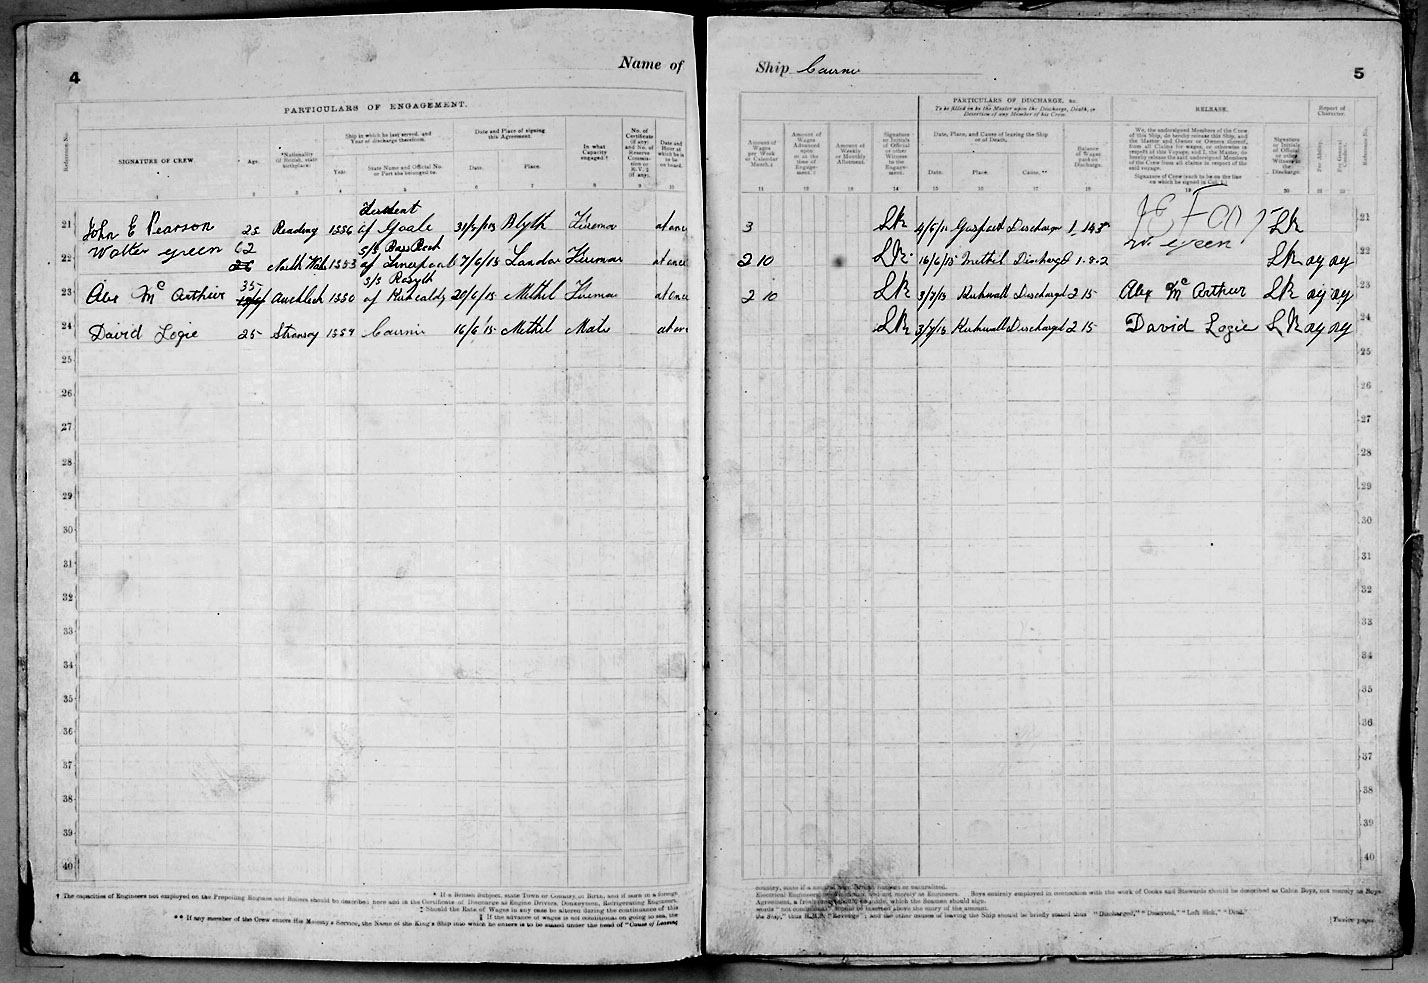 4
Name of
Ship Cairnie
5
PARTICULARS OF ENGAGEMENT.
PARTICULARS OF DISCHARGE, &c.
To be filled in by the Master upon the Discharge, Death, or
Desertion of any Member of his Crew.
RELEASE.
Report of
Character.
Reference No.
SIGNATURE OF CREW.
Age.
*Nationality
(if British, state
birthplace).
Ship in which he last served, and
Year of discharge therefrom.
Year.
State Name and Official No.
or Port she belonged to.
Date and Place of signing
this Agreement.
Date.
Place.
In what
Capacity
engaged.†
No. of
Certificate
(if any)
and No. of
Reserve
Commis-
sion or
R.V. 2
(if any).
Date and
Hour at
which he is
to be
on board.
Amount of
Wages
per Week
or Calendar
Month.‡
Amount of
Wages
Advanced
upon
or at the
time of
Engage-
ment.‡
Amount of
Weekly
or Monthly
Allotment.
Signature
or Initials
of Official
or other
Witness
to the
Engage-
ment.
Date, Place, and Cause of leaving the Ship
or of Death.
Date.
Place.
Cause.**
Balance
of
Wages
paid on
Discharge.
We, the undersigned Members of the Crew
of this Ship, do hereby release this Ship, and
the Master and Owner or Owners thereof,
from all Claims for wages, or otherwise in
respect of this Voyage, and I, the Master, do
hereby release the said undersigned Members
of the Crew from all claims in respect of the
said voyage.
Signature of Crew (each to be on the line
on which he signed in Col. 1.)
Signature
or Initials
of Official
or other
Witness to
the
Discharge.
For Ability.
For General
Conduct.
Reference No.
1 2 3 4 5 6 7 8 9 10
11 12 13 14 15 16 17 18 19 20 21 22
21 John E Pearson 25 Reading of Goole 31/5/15 Blyth Fireman at once
3 LK Gosport LK 21
22 Walter Green 62 North Wales s/s Bass Rock of Liverpool 7/6/15 London Fireman at once
2 10 LK 16/6/15 Methil Discharged W. Green LK 22
23 Alex McArthur 35 s/s Rosyth of Kirkcaldy Methil Fireman at once
2 10 LK 3/7/15 Kirkwall Discharged 2 15 Alex McArthur LK 23
24 David Logie 25 Stronsay Cairnie 16/6/15 Methil Mate at once
LK 3/7/15 Kirkwall Discharged 2 15 David Logie LK 24
25 25
26 26
27 27
28 28
29 29
30 30
31 31
32 32
33 33
34 34
35 35
36 36
37 37
38 38
39 39
40 40
* If a British Subject, state Town or Country of Birth, and if born in a foreign
country, state if a natural born British subject or naturalized.
† The capacities of Engineers not employed on the Propelling Engines and Boilers should be described here and in the Certificate of Discharge as Engine Drivers, Donkeymen, Refrigerating Engineers,
Electrical Engineers and not merely as Engineers. Boys entirely employed in connection with the work of Cooks and Stewards should be described as Cabin Boys, not merely as Boys.
‡ Should the Rate of Wages in any case be altered during the continuance of this
Agreement, which the Seamen should sign.
‡ If the advance of wages is not conditional on going to sea, the
words "not conditional" should be inserted above the entry of the amount.
** If any member of the Crew enters His Majesty's Service, the Name of the King's Ship into which he enters is to be stated under the head of "Cause of Leaving
the Ship," thus H.M.S. "Revenge"; and the other causes of leaving the Ship should be briefly stated thus "Discharged," "Deserted," "Left Sick," "Dead."